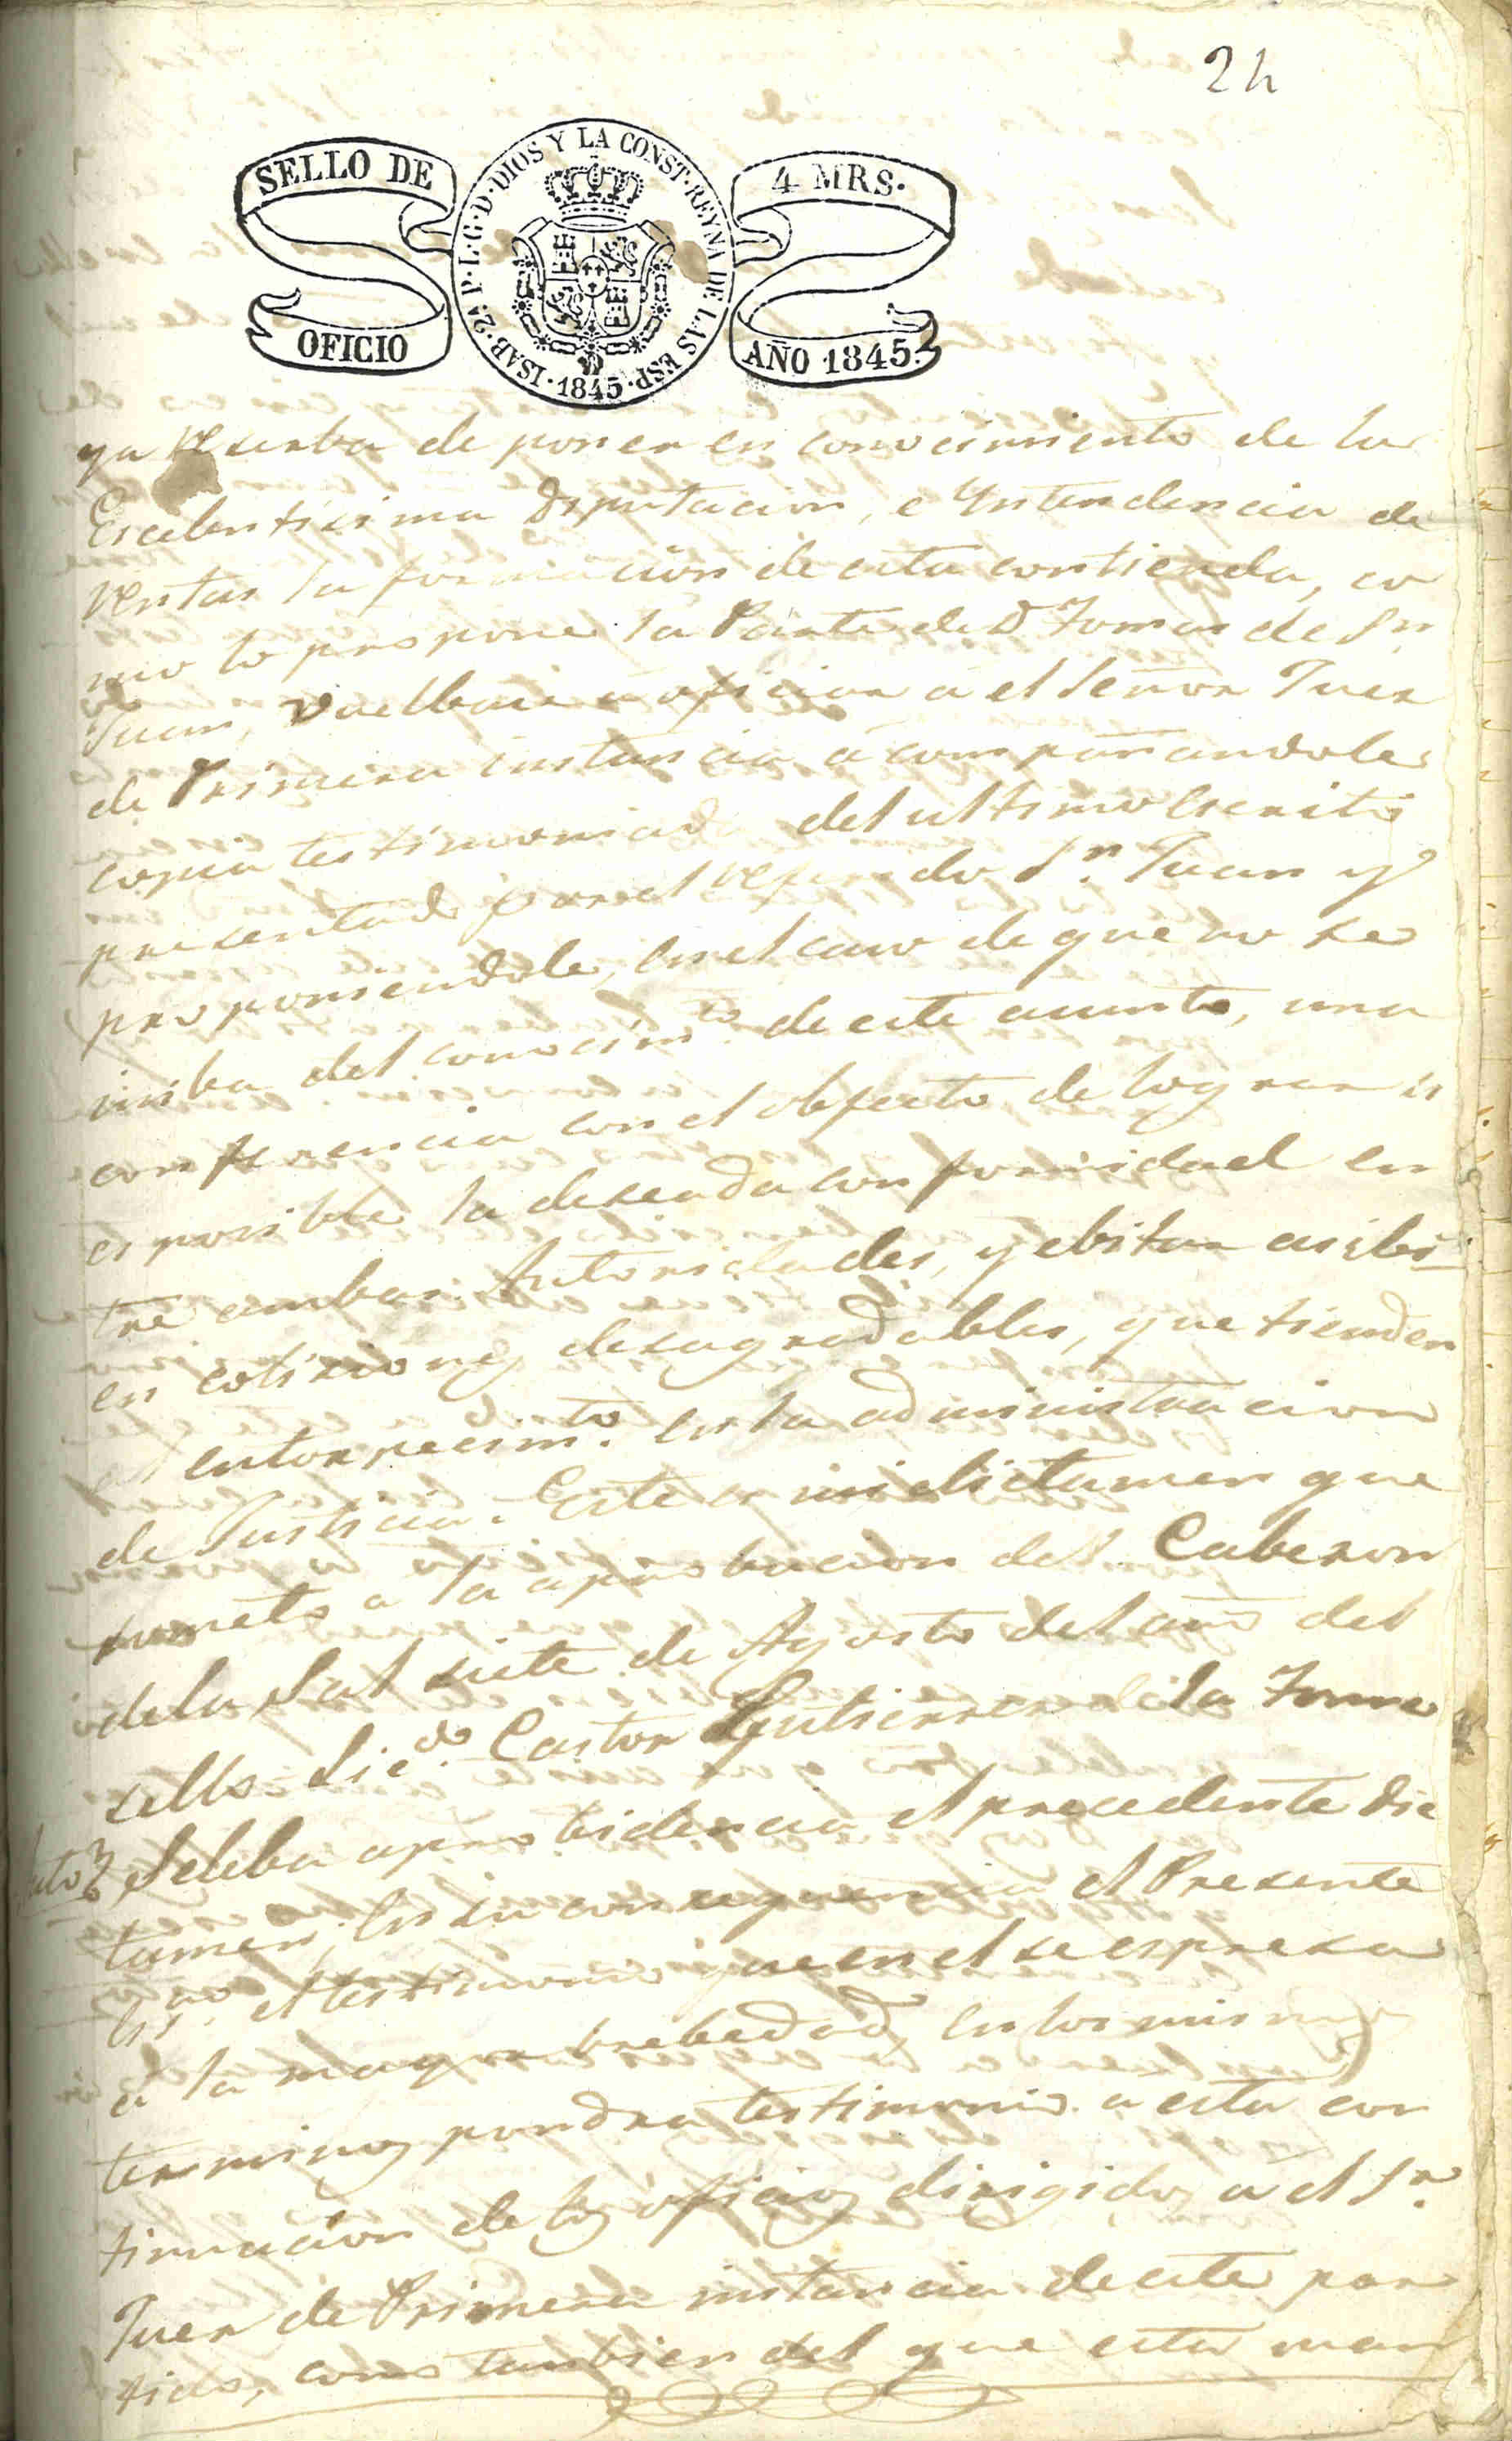 24
SELLO DE
OFICIO
ISAB. 2ª P. L. G. D. DIOS Y LA CONST. REYNA DE LAS ESP.
1845
4 MRS.
AÑO 1845.
ya reserba de poner en conocimiento de la
Escelentisima Diputacion, e Yntendencia de
Rentas la formacion de esta contienda, co
mo lo propone la Parte de Dⁿ Tomas de Sⁿ
Juan, Vuelbase a oficiar a el Señor Juez
de Primera instancia acompañandole
copia testimoniada del ultimo escrito
presentado por el referido Sⁿ Juan y
proponiendole, en el caso de que no se
iniba del conocimᵗᵒ de este asunto, una
conferencia con el obgecto de lograr si
es posible la deseada conformidad en
tre ambas Autoridades, y ebitar asi
en cotisiones desagradables, que tienden
al entorpecimᵗᵒ en la administracion
de Justicia. Este es mi dictamen que
someto a la aprobacion del Cabezon
de la Sal siete de Agosto del año del
sello. Licᵈᵒ Castor Gutierrez de la Torre
Auto Se deba a probidencia el precedente dic
tamen, en su consequencia el Presente
Esⁿᵒ el testimonio que en el se espresa
a la mayor brebedad, en los mismos
terminos pondra testimonio a esta con
tinuacion de los oficios dirigidos a el Sʳ
Juez de Primera instancia de este par
tido, como tambien del que esta man